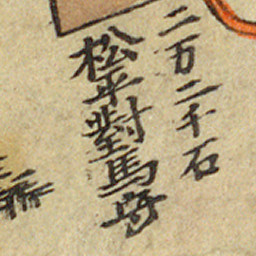 二万二千石
松平對馬守